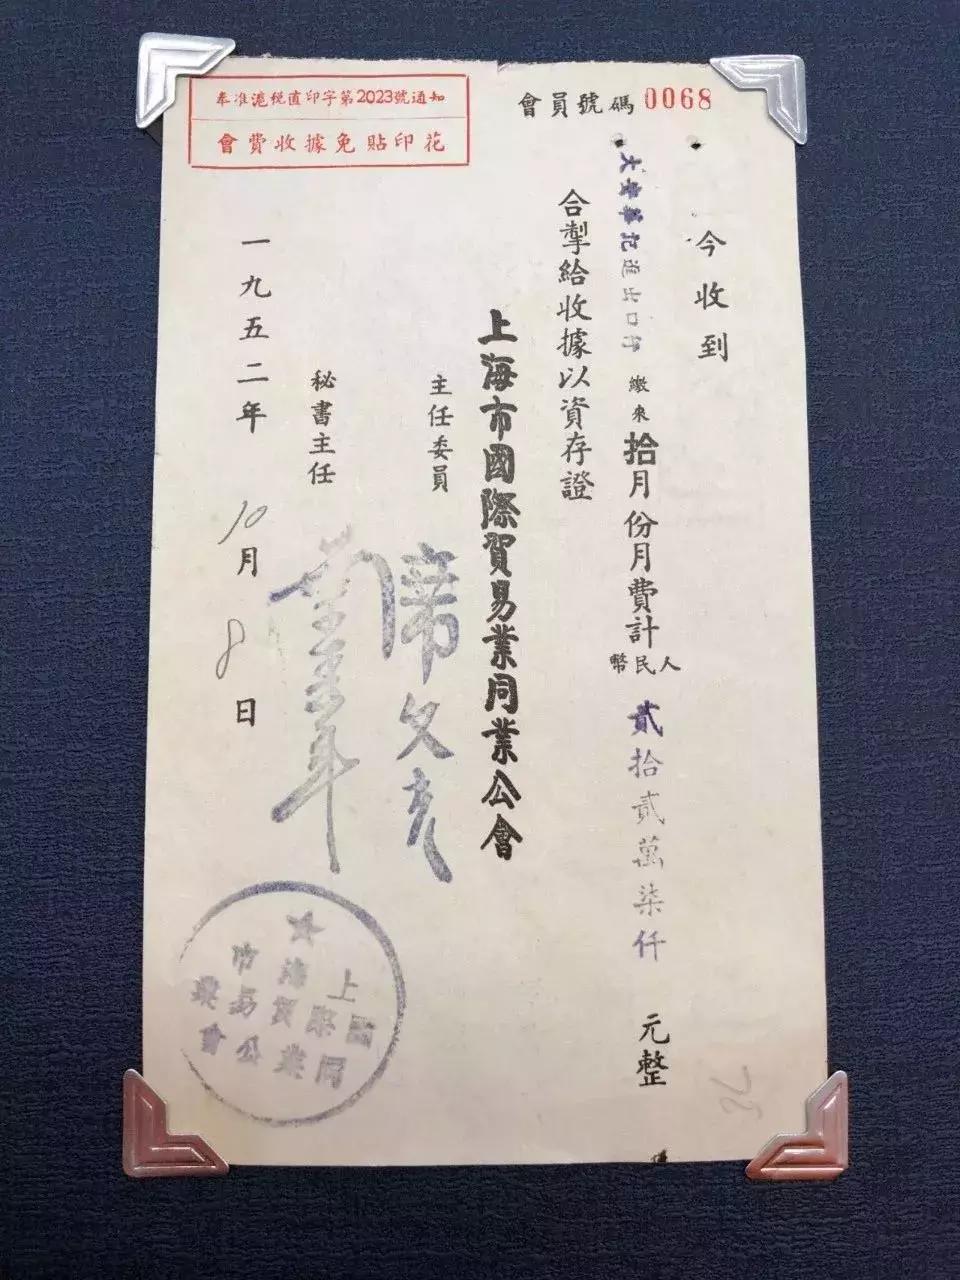 奉准滬税直印字第2023號通知
會費收據免貼印花
會員號碼 0068
今收到
進出口行 繳來 拾月份月費計人民幣 貳拾貳萬柒仟 元整
合掣給收據以資存證
上海市國際貿易業同業公會
主任委員 席文光
秘書主任
一九五二年 10月 8日
上海市
國際貿易業
同業公會